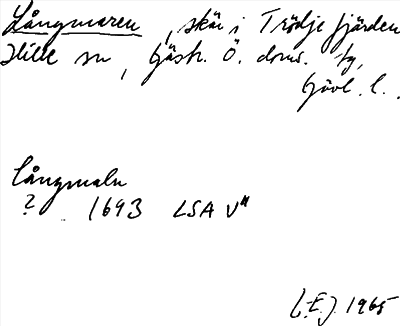 Långmaren, skär i Trödje fjärden
Hille sn, Gästr. Ö. doms. tg,
Gävl. l.
långmaln
? 1693 LSA V"
(.E.). 1965